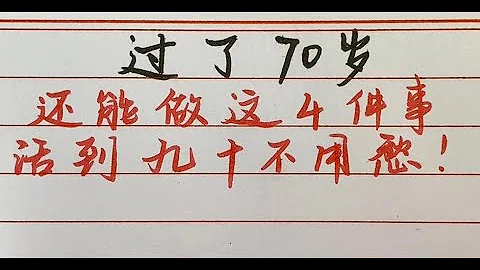 过了70岁
还能做这4件事
活到九十不用愁！